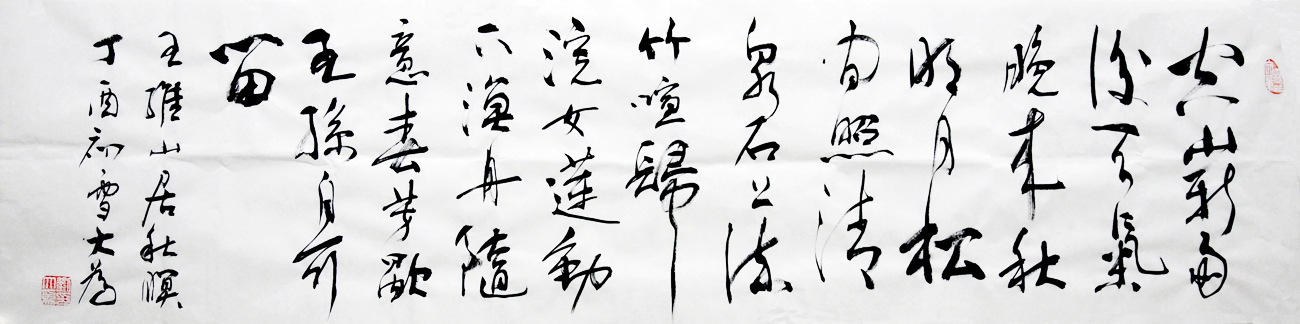 空山新雨
後天氣
晚来秋
明月松
间照清
泉石上流
竹喧歸
浣女莲動
下漁舟隨
意春芳歇
王孫自可
留
王維山居秋暝
丁酉初雪大為